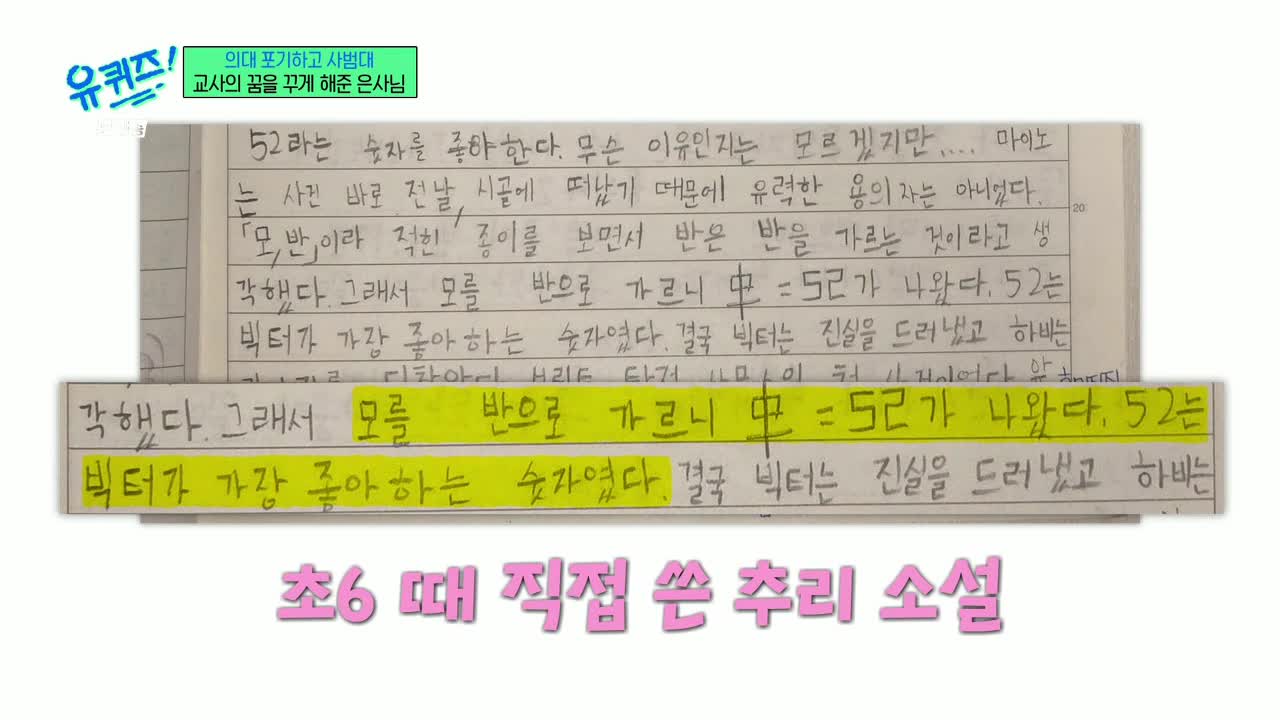 유퀴즈!
의대 포기하고 사범대
교사의 꿈을 꾸게 해준 은사님
52라는 숫자를 좋아한다. 무슨 이유인지는 모르겠지만.... 마이노
는 사건 바로 전날, 시골에 떠났기 때문에 유력한 용의자는 아니었다.
20
「모, 반」이라 적힌 종이를 보면서 반은 반을 가르는 것이라고 생
각했다. 그래서 모를 반으로 가르니 모 = 52가 나왔다. 52는
빅터가 가장 좋아하는 숫자였다. 결국 빅터는 진실을 드러냈고 하비는
각했다. 그래서 모를 반으로 가르니 모 = 52가 나왔다. 52는
빅터가 가장 좋아하는 숫자였다. 결국 빅터는 진실을 드러냈고 하비는
초6 때 직접 쓴 추리 소설